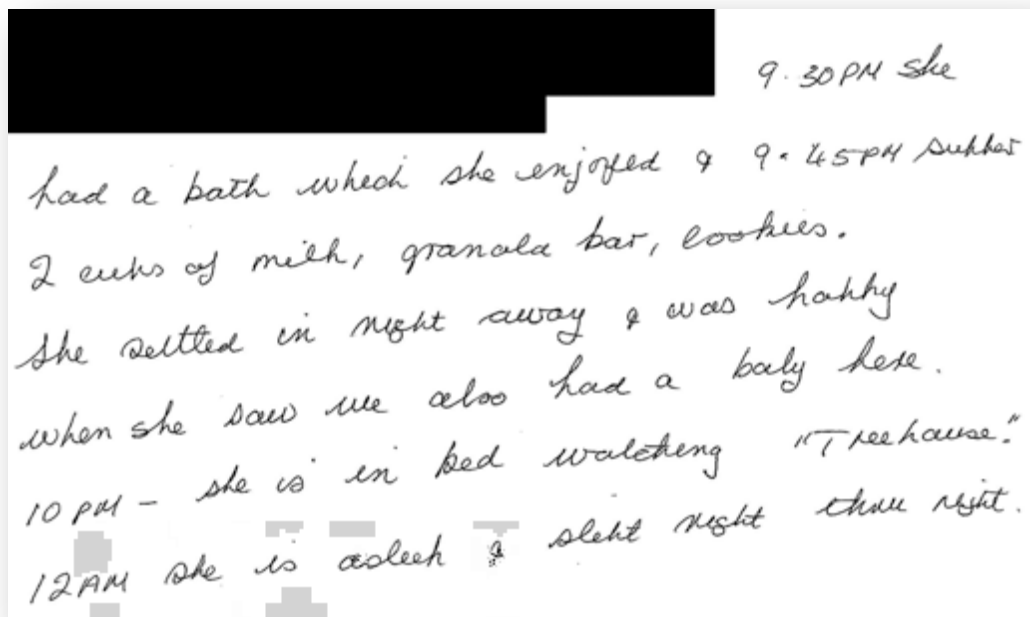 9.30PM she
had a bath which she enjoyed & 9.45PM supper
2 cups of milk, granola bar, cookies.
She settled in right away & was happy
when she saw we also had a baby here.
10 PM – she is in bed watching "Treehouse".
12AM she is asleep & slept right thru night.